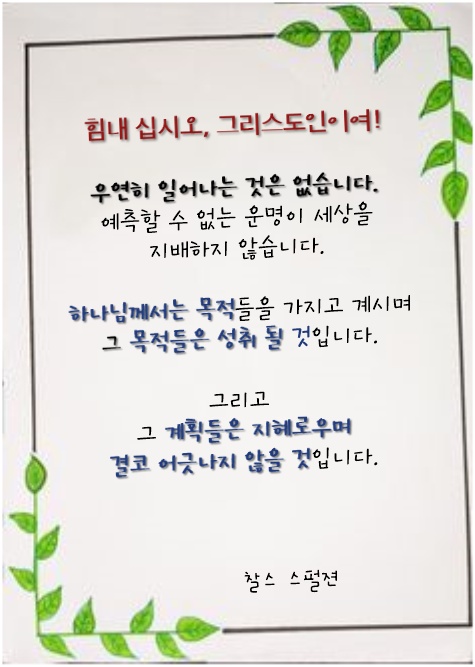 힘내 십시오, 그리스도인이여!
우연히 일어나는 것은 없습니다.
예측할 수 없는 운명이 세상을
지배하지 않습니다.
하나님께서는 목적들을 가지고 계시며
그 목적들은 성취 될 것입니다.
그리고
그 계획들은 지혜로우며
결코 어긋나지 않을 것입니다.
찰스 스펄젼